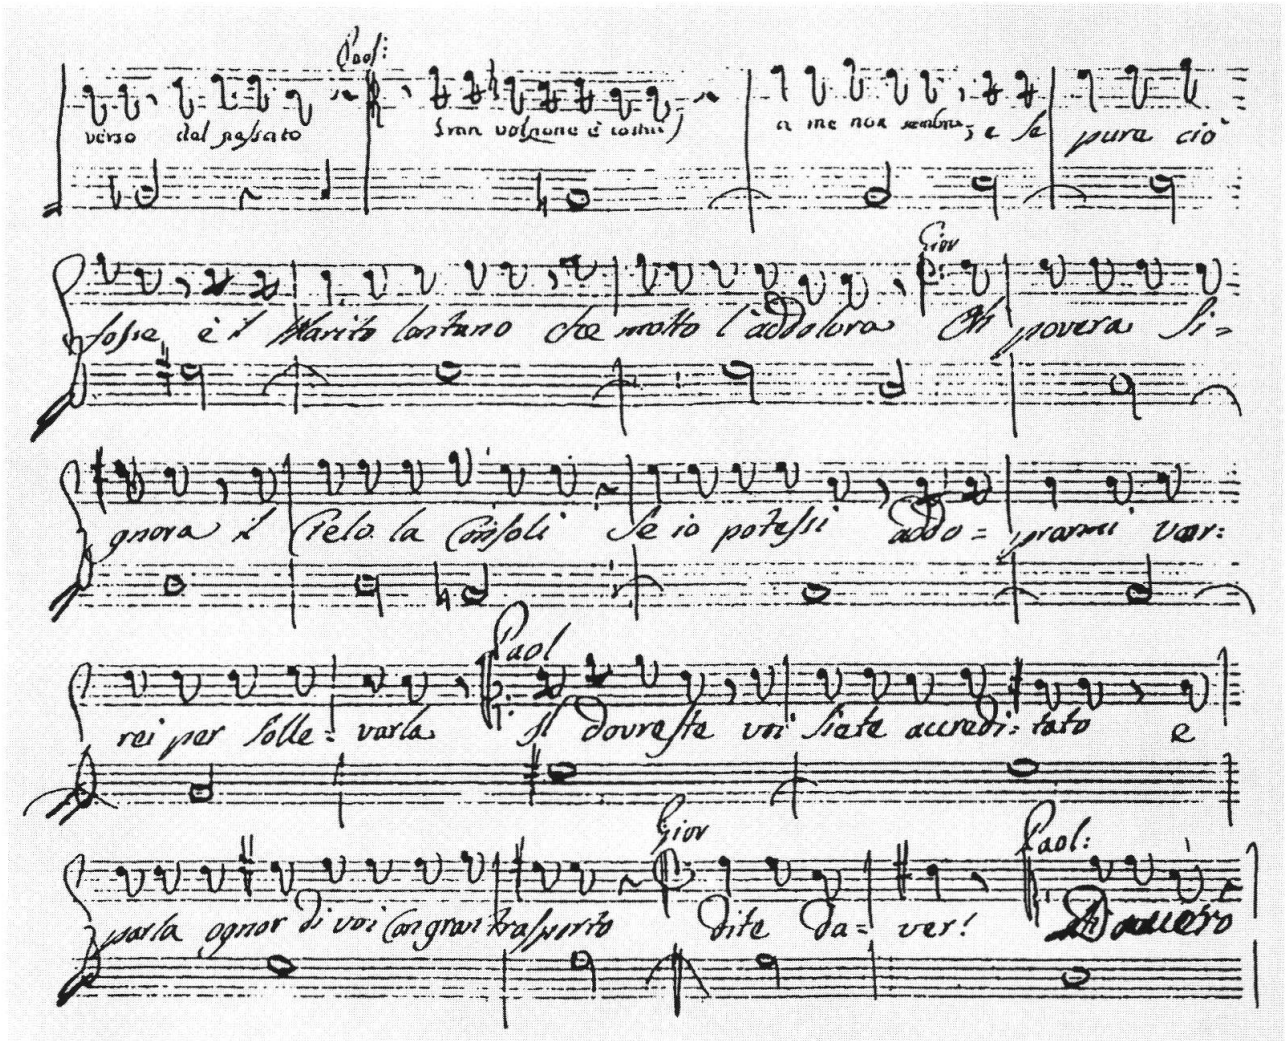 Paol:
verso dal passato Gran volpone è costui a me non sembra; e se pure ciò
Giov
fosse è il Marito lontano che molto l'addolora Oh povera Si=
gnora il Cielo la Consoli Se io potessi addo= prarmi vor:
Paol
rei per solle= varla Si dovreste voi siete accredi: tato e
Giov Paol:
parla ognor di voi Con gran trasporto dite da= ver!